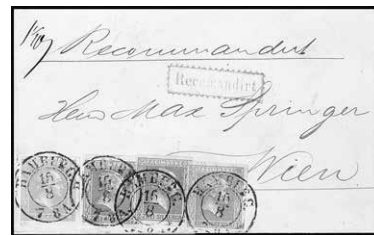 Recommandirt
Recomandirt
Herrn Max Springer
Wien
HAMBURG
16/8
HAMBURG
16/8
HAMBURG
16/8
HAMBURG
16/8